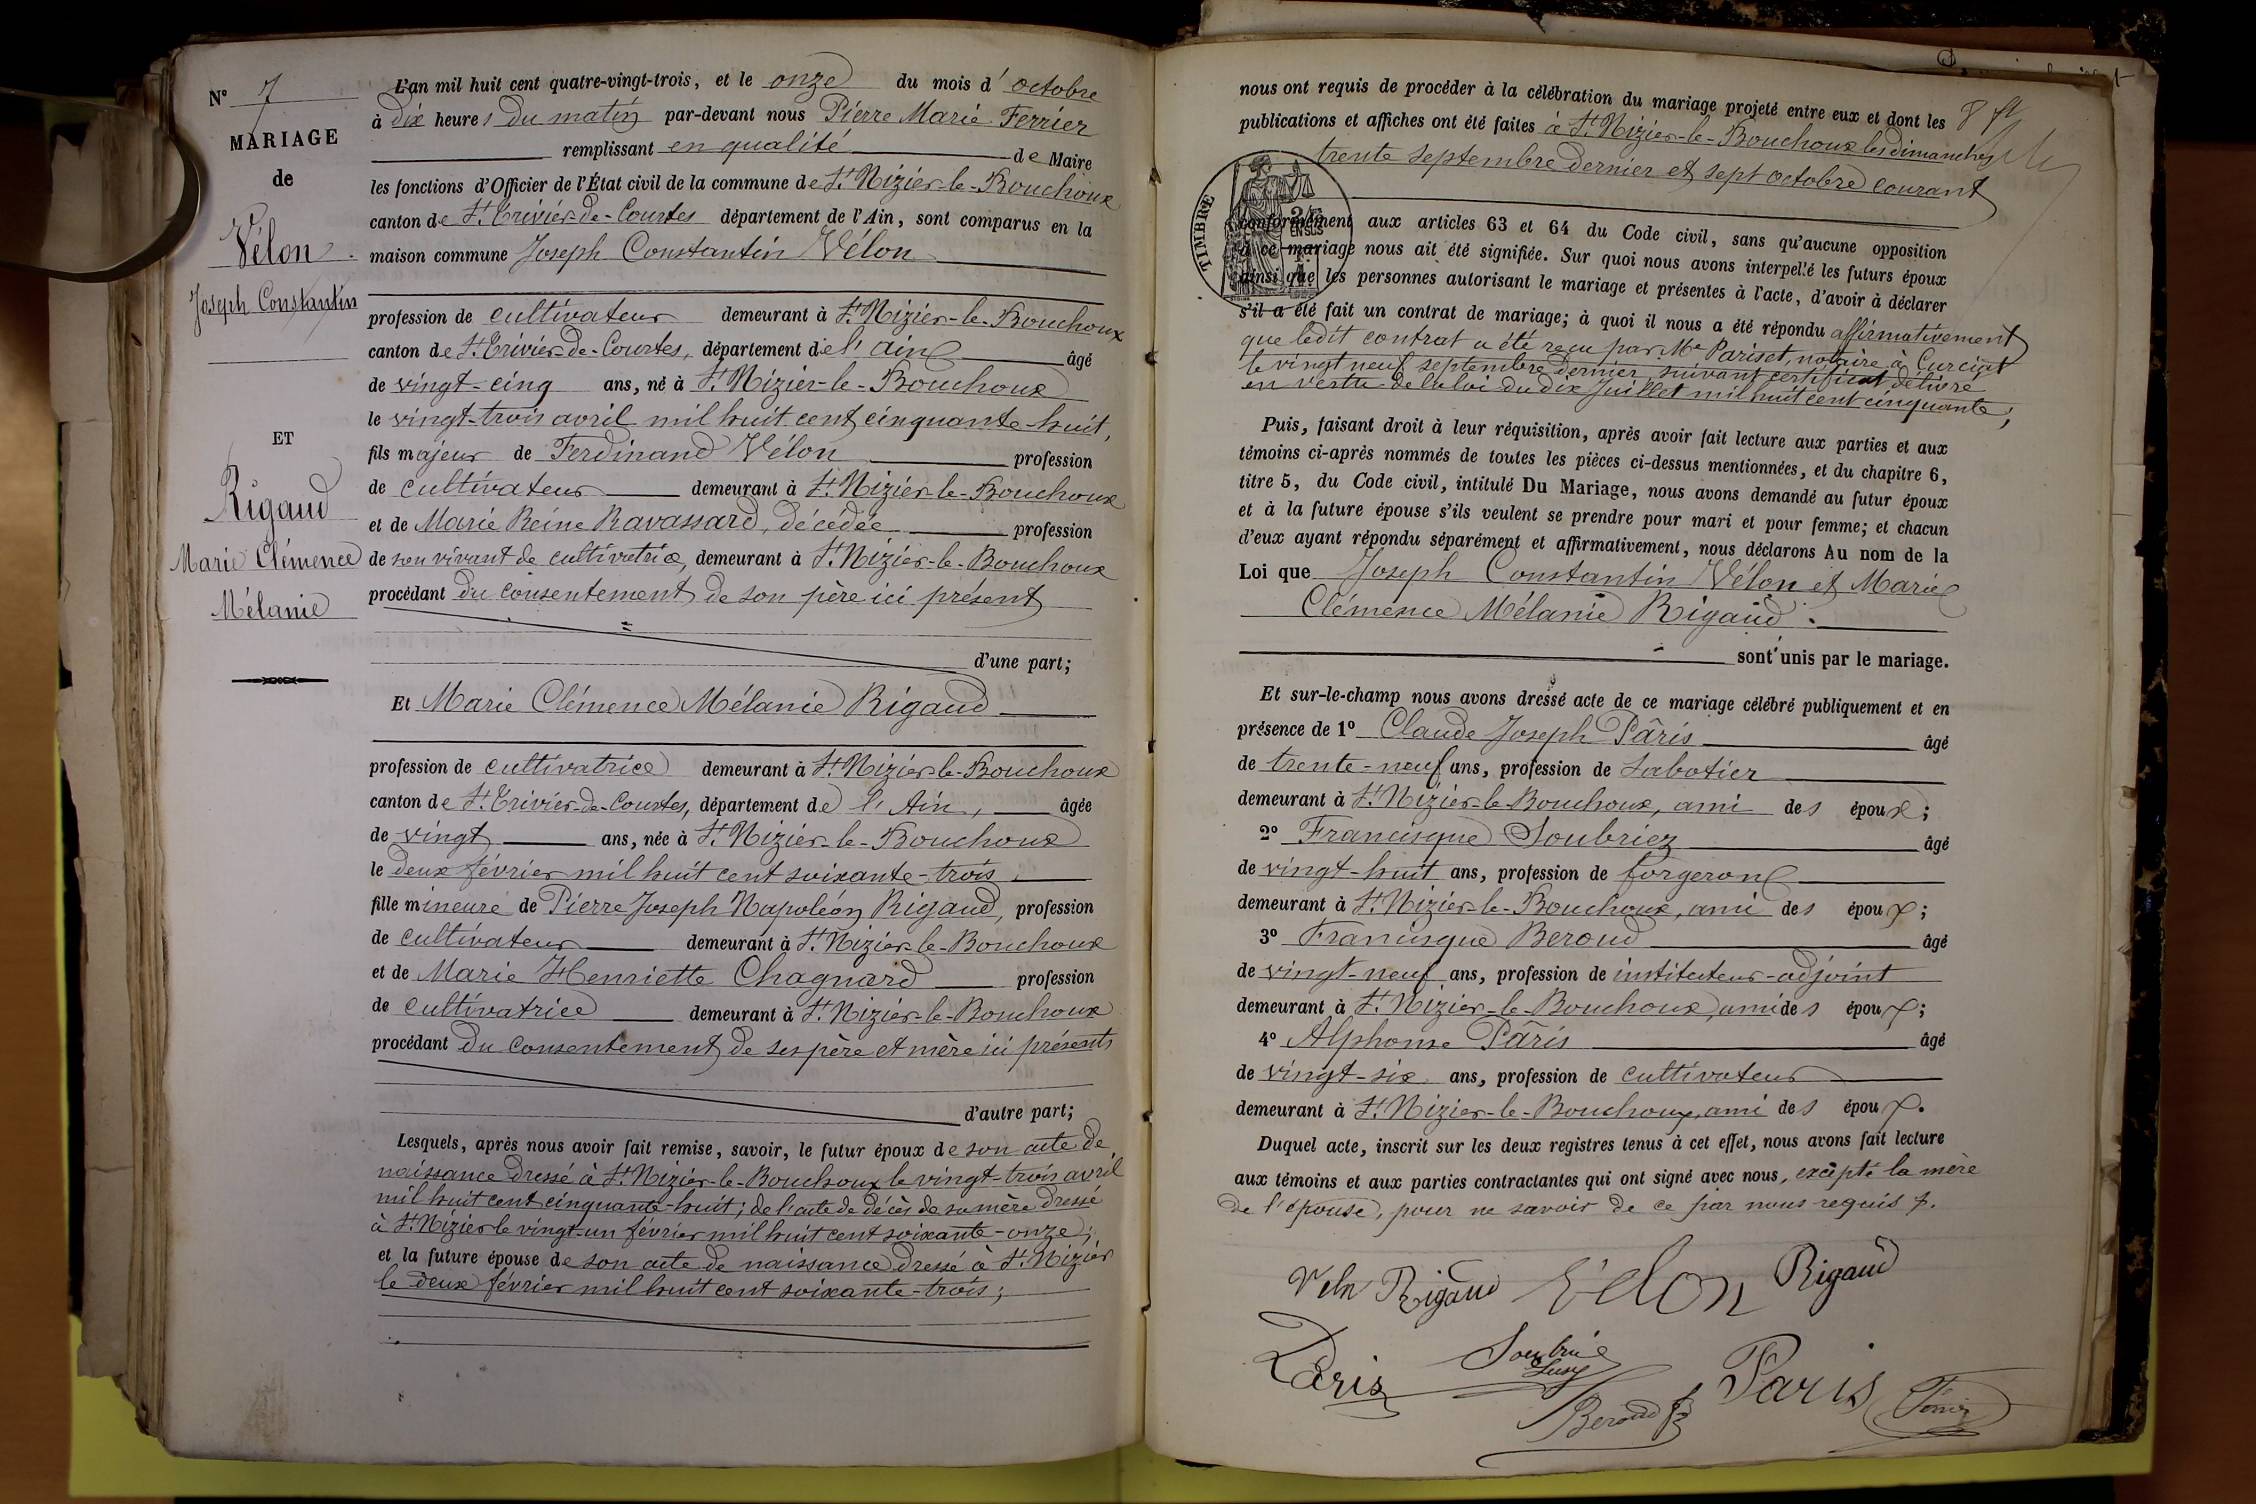 N° 7
MARIAGE
de
Vélon
Joseph Constantin
ET
Rigaud
Marie Clémence
Mélanie
L'an mil huit cent quatre-vingt-trois, et le onze du mois d'octobre
à dix heures du matin par-devant nous Pierre Marie Ferrier
remplissant en qualité de Maire
les fonctions d'Officier de l'État civil de la commune de St Nizier-le-Bouchoux
canton de St Trivier-de-Courtes département de l'Ain, sont comparus en la
maison commune Joseph Constantin Vélon
profession de cultivateur demeurant à St Nizier-le-Bouchoux
canton de St Trivier-de-Courtes, département de l'Ain âgé
de vingt-cinq ans, né à St Nizier-le-Bouchoux
le vingt-trois avril mil huit cent cinquante-huit,
fils majeur de Ferdinand Vélon profession
de cultivateur demeurant à St Nizier-le-Bouchoux
et de Marie Reine Ravassard, décédée profession
de son vivant de cultivatrice, demeurant à St Nizier-le-Bouchoux
procédant du consentement de son père ici présent
d'une part;
Et Marie Clémence Mélanie Rigaud
profession de cultivatrice demeurant à St Nizier-le-Bouchoux
canton de St Trivier-de-Courtes, département de l'Ain, âgée
de vingt ans, née à St Nizier-le-Bouchoux
le deux février mil huit cent soixante-trois
fille mineure de Pierre Joseph Napoléon Rigaud, profession
de cultivateur demeurant à St Nizier-le-Bouchoux
et de Marie Henriette Chagnard profession
de cultivatrice demeurant à St Nizier-le-Bouchoux
procédant du consentement de ses père et mère ici présents
d'autre part;
Lesquels, après nous avoir fait remise, savoir, le futur époux de son acte de
naissance dressé à St Nizier-le-Bouchoux le vingt-trois avril
mil huit cent cinquante-huit; de l'acte de décès de sa mère dressé
à St Nizier le vingt-un février mil huit cent soixante-onze;
et la future épouse de son acte de naissance dressé à St Nizier
le deux février mil huit cent soixante-trois;
nous ont requis de procéder à la célébration du mariage projeté entre eux et dont les
publications et affiches ont été faites à St Nizier-le-Bouchoux les dimanches
trente septembre dernier et sept octobre courant
TIMBRE
conformément aux articles 63 et 64 du Code civil, sans qu'aucune opposition
à ce mariage nous ait été signifiée. Sur quoi nous avons interpellé les futurs époux
ainsi que les personnes autorisant le mariage et présentes à l'acte, d'avoir à déclarer
s'il a été fait un contrat de mariage; à quoi il nous a été répondu affirmativement
que ledit contrat a été reçu par Me Pariset, notaire à Curciat
le vingt neuf septembre dernier, suivant certificat délivré
en vertu de la loi du dix Juillet mil huit cent cinquante;
Puis, faisant droit à leur réquisition, après avoir fait lecture aux parties et aux
témoins ci-après nommés de toutes les pièces ci-dessus mentionnées, et du chapitre 6,
titre 5, du Code civil, intitulé Du Mariage, nous avons demandé au futur époux
et à la future épouse s'ils veulent se prendre pour mari et pour femme; et chacun
d'eux ayant répondu séparément et affirmativement, nous déclarons Au nom de la
Loi que Joseph Constantin Vélon et Marie
Clémence Mélanie Rigaud.
sont unis par le mariage.
Et sur-le-champ nous avons dressé acte de ce mariage célébré publiquement et en
présence de 1° Claude Joseph Pâris âgé
de trente-neuf ans, profession de sabotier
demeurant à St Nizier-le-Bouchoux, ami des époux;
2° Francisque Soubriez âgé
de vingt-huit ans, profession de forgeron
demeurant à St Nizier-le-Bouchoux, ami des époux;
3° Francisque Beroud âgé
de vingt-neuf ans, profession de instituteur-adjoint
demeurant à St Nizier-le-Bouchoux, ami des époux;
4° Alphonse Pâris âgé
de vingt-six ans, profession de cultivateur
demeurant à St Nizier-le-Bouchoux, ami des époux.
Duquel acte, inscrit sur les deux registres tenus à cet effet, nous avons fait lecture
aux témoins et aux parties contractantes qui ont signé avec nous, excepté la mère
de l'épouse, pour ne savoir de ce par nous requis
Veln Rigaud Vélon Rigaud
Pâris
Beroud Paris